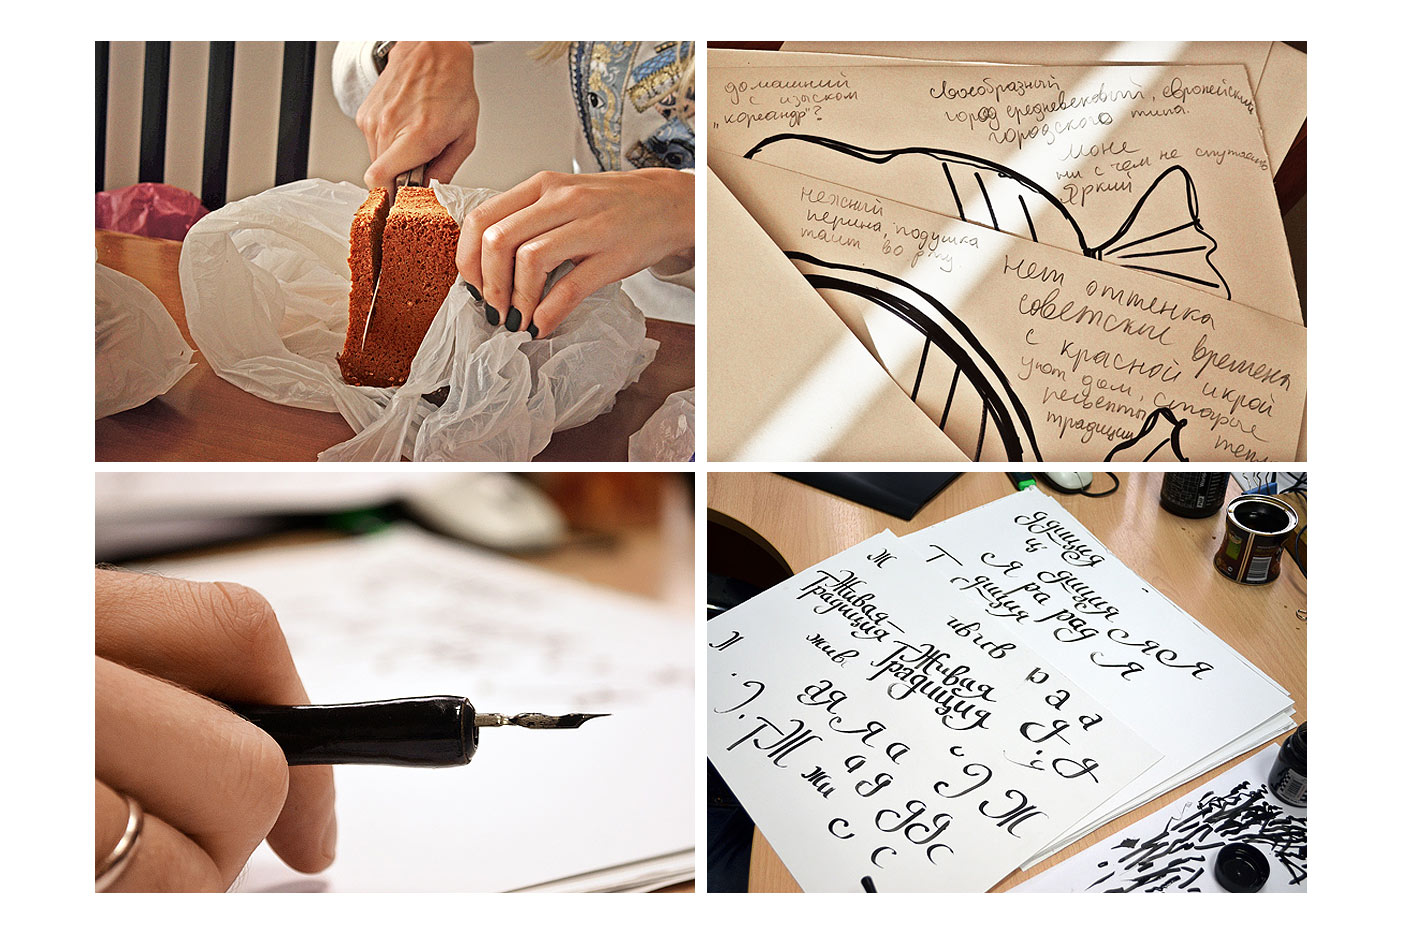 домашний
с изыском
„кориандр"?
Своеобразный
город средневековый, европейский
городского типа.
Може
ни с чем не спутаешь
Яркий
нежный
перина, подушка
таит во рту.
Нет оттенка
советских времена
с красной икрой
уют дом, старые
рецепты
традиции
тепл
ддиция
ц
Я диция
Т
диция ра рад СЯСЯ
Я
Ж
Живая
Традиция
ив ив в
живы
Живая
Традиция
а а
ая Я а
с
ТЖ
жи
а д
дд с
Ж
с
с